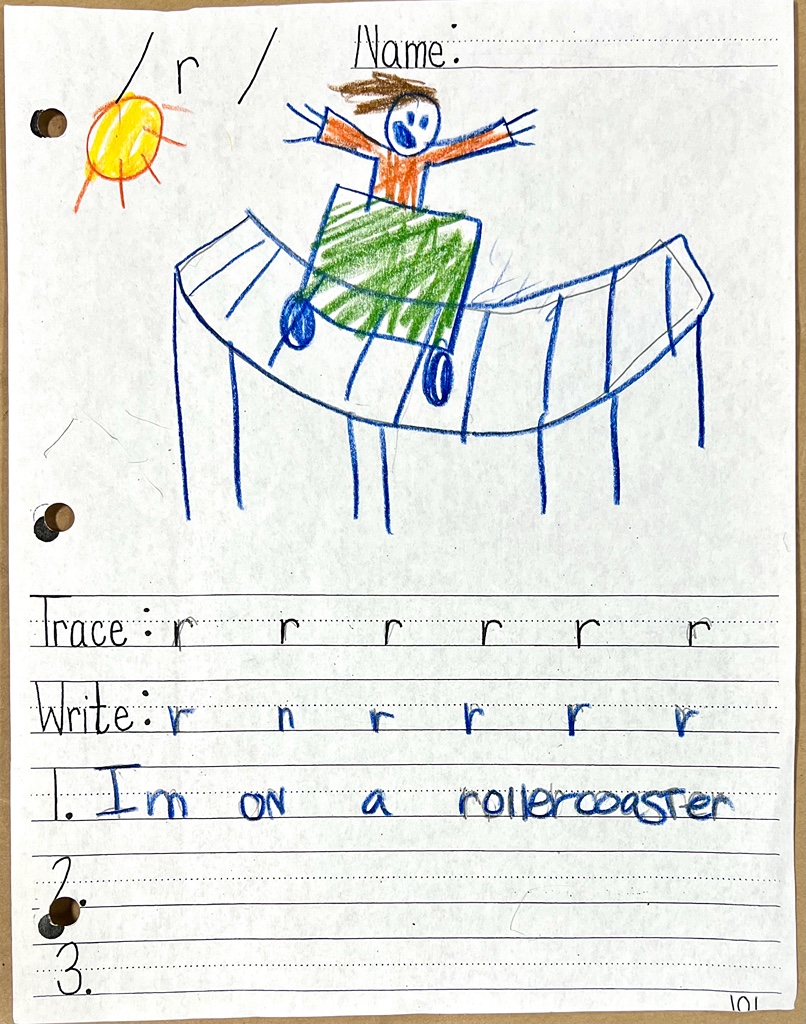 / r / Name:
Trace: r r r r r r
Write: r n r r r r
1. Im on a rollercoaster
2.
3.
101